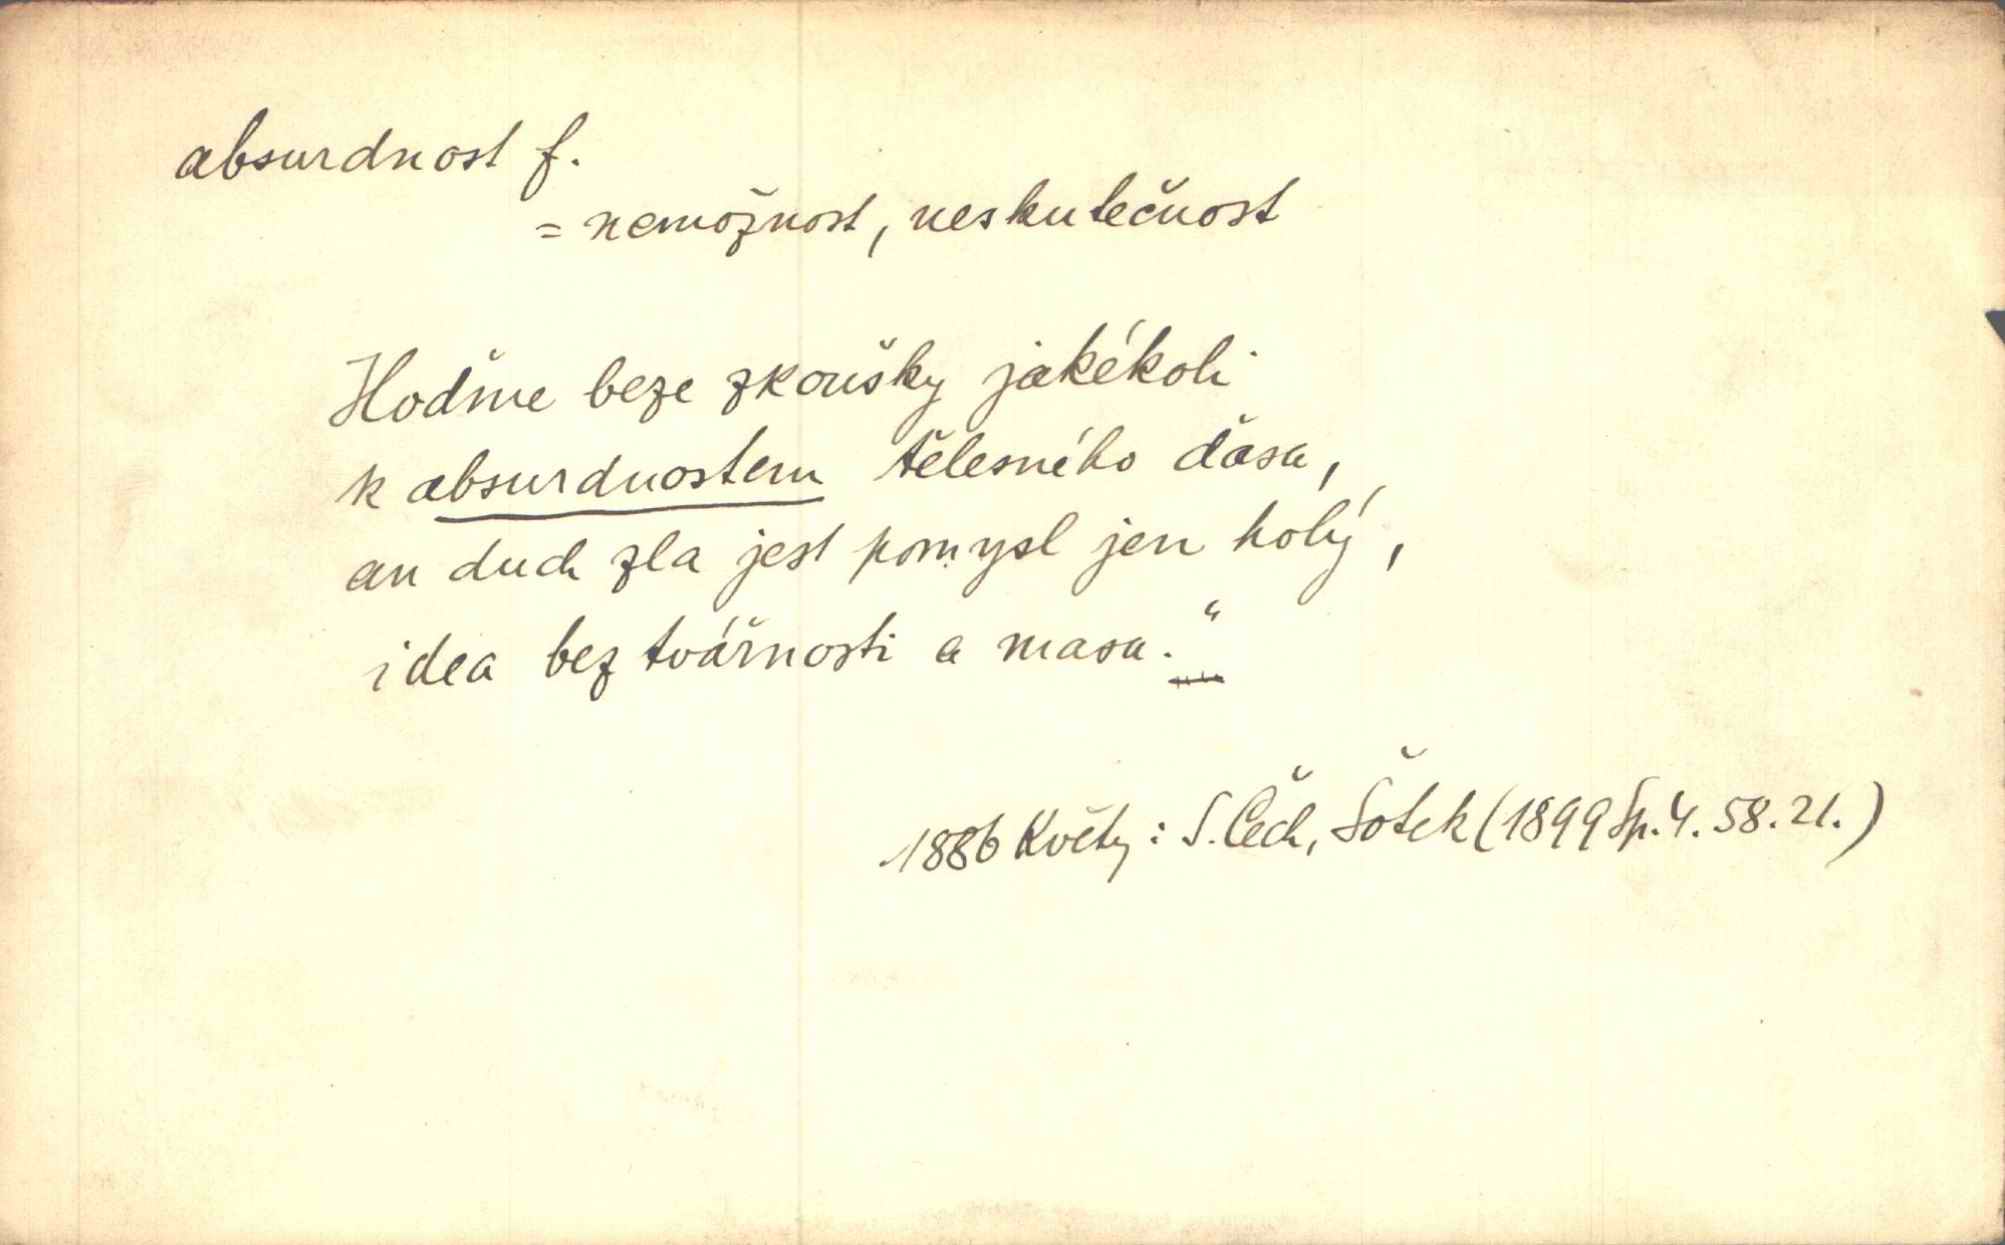 absurdnost f.
= nemožnost, neskutečnost
Hoďme beze zkoušky jakékoli
k absurdnostem tělesného ďasa,
an duch zla jest pomysl jen holý,
idea bez tvářnosti a masa.“
1886 Květy: S. Čech, Šotek (1899 Sp. 4. 58. 21.)